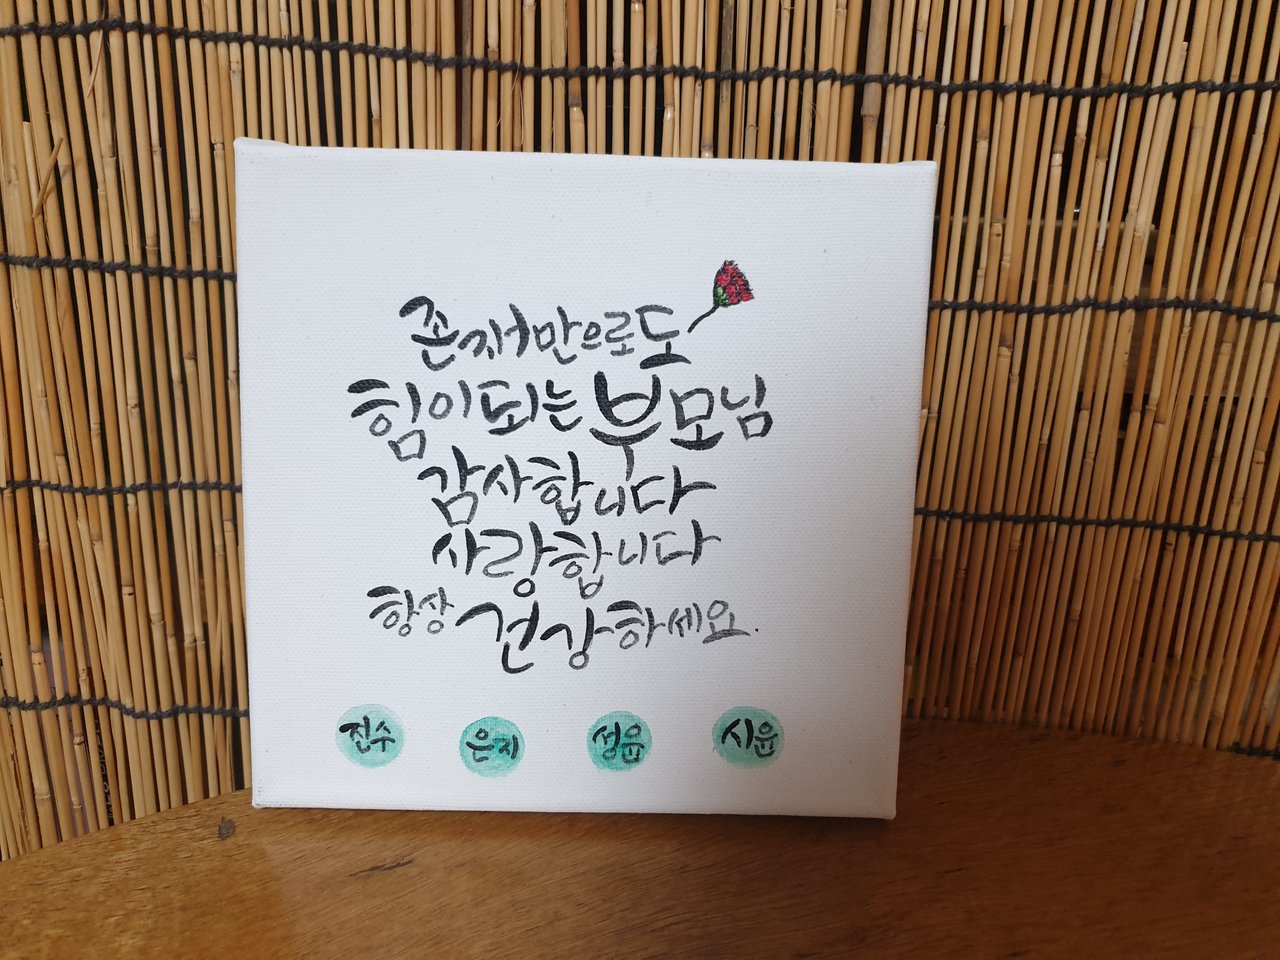 존재만으로도
힘이되는 부모님
감사합니다
사랑합니다
항상 건강하세요.
진수 은지 성윤 시윤